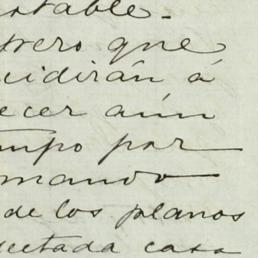 notable.
trero que
cidirán á
ecer aún
mpo por
mando
de los planos
yectada casa